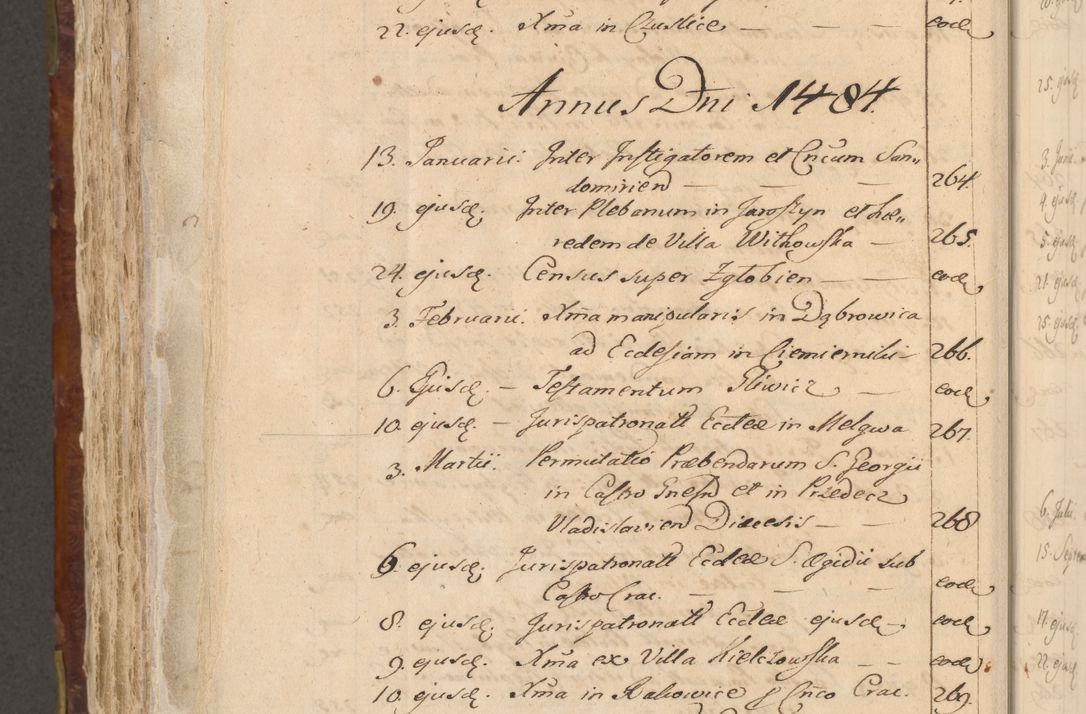 22. ejusd. Xma in Czuslice — — eod.
Annus Dni 1484.
13. Januarii. Inter Instigatorem et Cricum San„
domirien — — — 264.
19. ejusd. Inter Plebanum in Jarostyn et hæ„
redem de Villa Withowska — 265.
24. ejusd. Census super Zglobien — eod.
3. Februarii. Xma manipularis in Dąbrowica
ad Ecclesiam in Ciemiernik 266.
6. Ejusd. — Testamentum — eod.
10. ejusd. — Jurispatronatt Ecclæ in Melgwa 267.
3. Martii. Permutatio Præbendarum S. Georgii
in Castro Gnesn et in Przedecz
Vladislavien Diæcesis — — 268
6. ejusd. Jurispatronatt Ecclæ S. Ægidii sub
Castro Crac. — — — eod.
8. ejusd. Jurispatronatt Ecclæ ejusd — eod.
9. ejusd. Xma ex Villa Kielczowska — — eod.
10. ejusd. Xma in Rakowice p Cnco Crac. 269.
25. ejusd
3. Junii
9. ejusd
5. ejusd
21. ejusd
25. ejusd
6. Julii
15. Septem
17. ejusd
22. ejusd